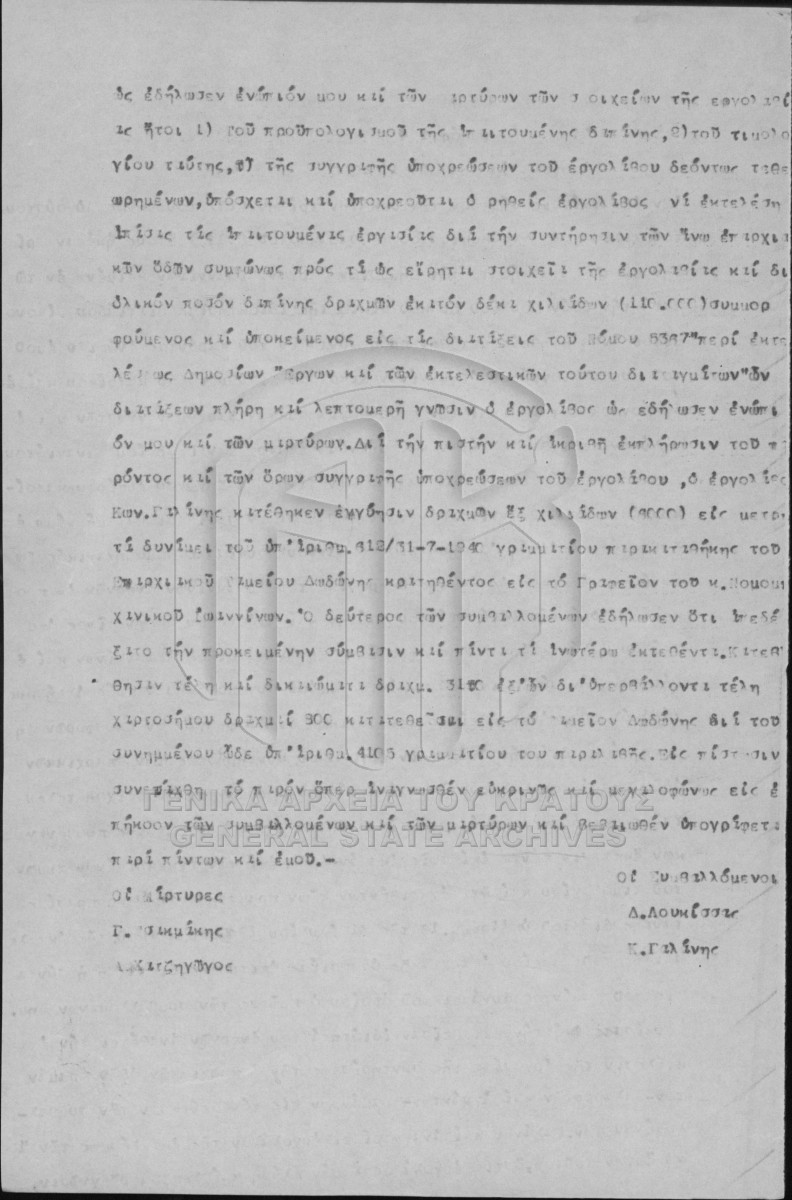 ὡς ἐδήλωσεν ἐνώπιόν μου καί τῶν μαρτύρων τῶν στοιχείων τῆς εργολαβί
ας ἤτοι 1) τοῦ προϋπολογισμοῦ τῆς ἀπαιτουμένης δαπάνης,2)τοῦ τιμολο
γίου ταύτης,3) τῆς συγγραφῆς ὑποχρεώσεων τοῦ ἐργολάβου δεόντως τεθε
ωρημένων,ὑπόσχεται καί ὑποχρεοῦται ὁ ρηθείς ἐργολάβος νά ἐκτελέση
ἁπάσας τάς ἀπαιτουμένας ἐργασίας διά τήν συντήρησιν τῶν ἄνω ἐπαρχια
κῶν ὁδῶν συμφώνως πρός τά ὡς εἴρηται στοιχεῖα τῆς ἐργολαβίας καί δι
ὁλικόν ποσόν δαπάνης δραχμῶν ἑκατόν δέκα χιλιάδων (110.000)συμμορ
φούμενος καί ὑποκείμενος εἰς τάς διατάξεις τοῦ Νόμου 5367"περί ἐκτε
λέσεως Δημοσίων Ἔργων καί τῶν ἐκτελεστικῶν τούτου διαταγμάτων"ὧν
διατάξεων πλήρη καί λεπτομερῆ γνῶσιν ὁ ἐργολάβος ὡς εδήλωσεν ἐνώπι
όν μου καί τῶν μαρτύρων.Διά τήν πιστήν καί ἀκριβῆ ἐκπλήρωσιν τοῦ πα
ρόντος καί τῶν ὅρων συγγραφῆς ὑποχρεώσεων τοῦ ἐργολάβου ,ὁ ἐργολάβος
Κων.Γαλάνης κατέθηκεν ἐγγύησιν δραχμῶν ἕξ χιλιάδων (6000) εἰς μετρη
τά δυνάμει τοῦ ὑπ'ἀριθμ.612/31-7-1940 γραμματίου παρακαταθήκης τοῦ
Ἐπαρχιακοῦ Ταμείου Δωδώνης κρατηθέντος εἰς τό Γραφεῖον τοῦ κ.Νομομη
χανικοῦ Ἰωαννίνων. Ὁ δεύτερος τῶν συμβαλλομένων ἐδήλωσεν ὅτι ἀπεδέ
ξατο τήν προκειμένην σύμβασιν καί πάντα τά ἀνωτέρω ἐκτεθέντα.Κατεβλή
θησαν τέλη καί δικαιώματα δραχμ. 3110 ἐξ'ὧν δι'ὑπερβάλλοντα τέλη
χαρτοσήμου δραχμαί 800 κατατεθεῖσαι εἰς τό Ταμεῖον Δωδώνης διά τοῦ
συνημμένου ὧδε ὑπ'ἀριθμ.4105 γραμματίου του παραλαβῆς.Εἰς πίστωσιν
συνετάχθη τό παρόν ὅπερ ἀναγνωσθέν εὐκρινῶς καί μεγαλοφώνως εἰς ἐ
πήκοον τῶν συμβαλλομένων καί τῶν μαρτύρων καί βεβαιωθέν ὑπογράφεται
παρά πάντων καί ἐμοῦ.-
ΓΕΝΙΚΑ ΑΡΧΕΙΑ ΤΟΥ ΚΡΑΤΟΥΣ
GENERAL STATE ARCHIVES
Οἱ Συμβαλλόμενοι
Οἱ Μάρτυρες
Δ.Λουκίσσας
Γ.
Κ.Γαλάνης
Χατζηγῶγος